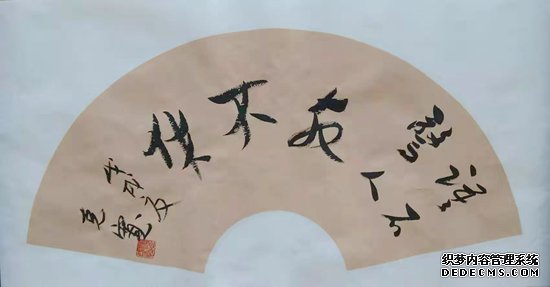 語不
驚人
死
不
休
织梦内容管理系统
DEDECMS.COM